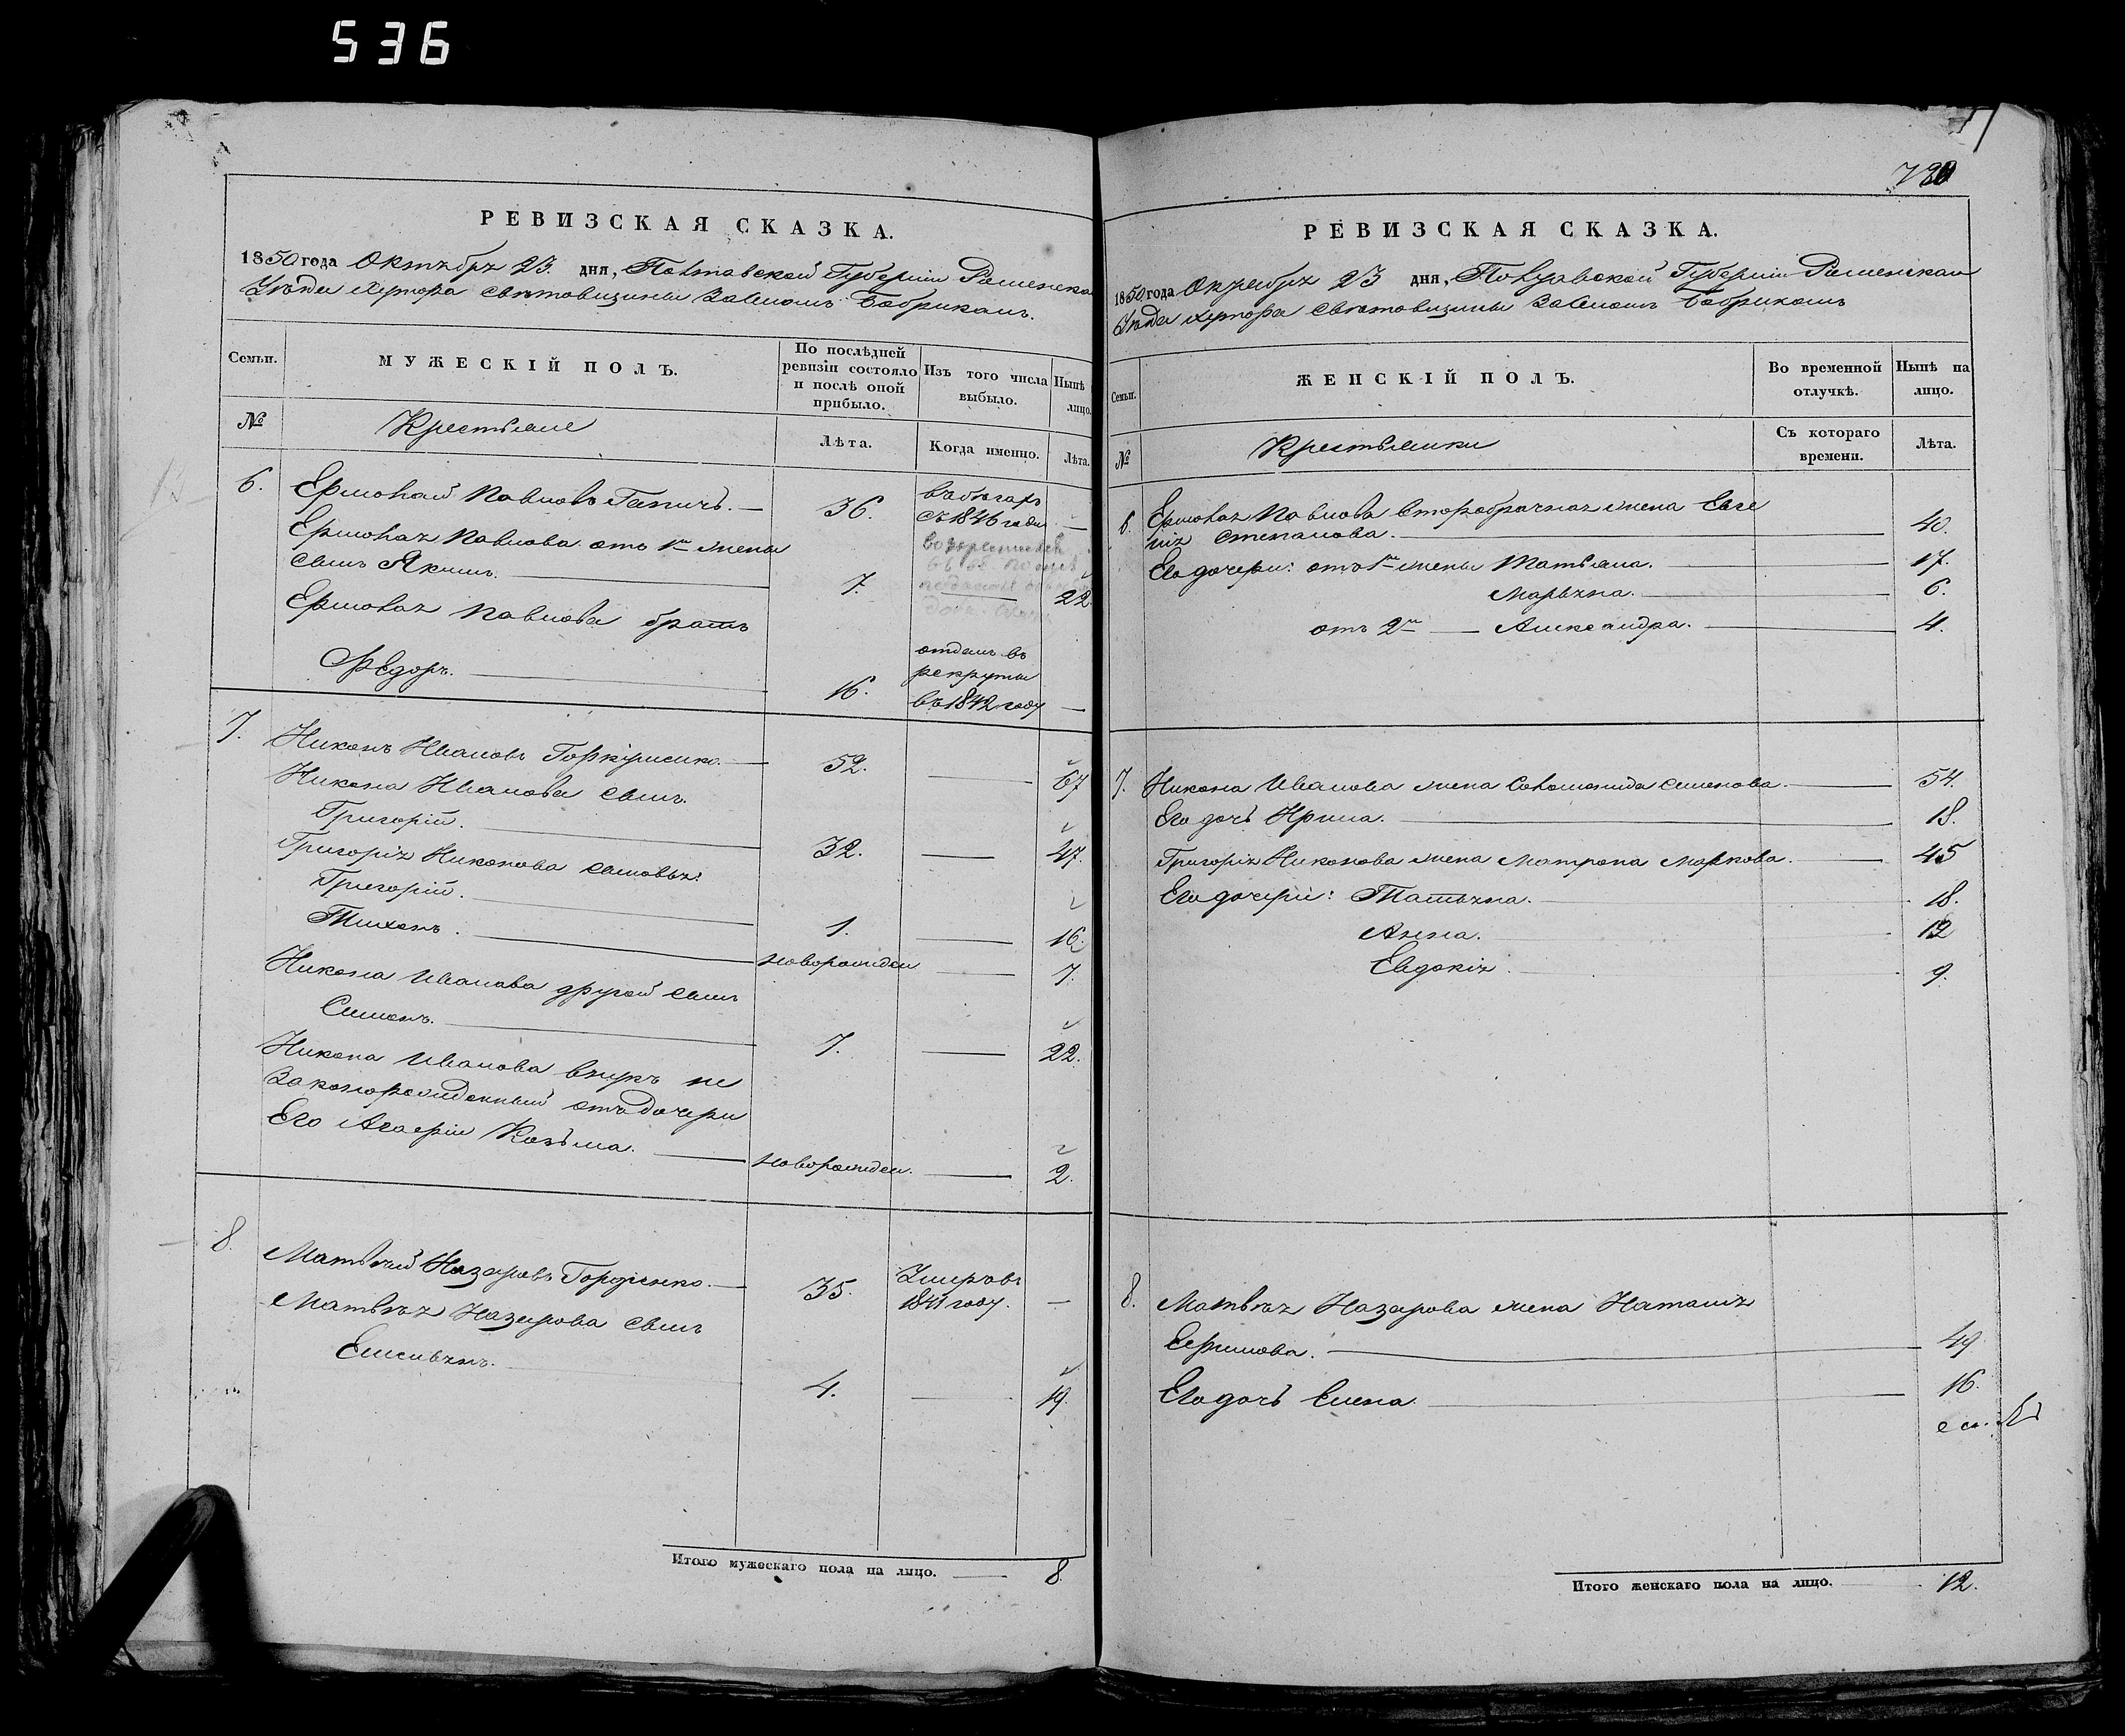 536
РЕВИЗСКАЯ СКАЗКА.
1850 года Октября 23. дня, Полтавской Губернiи Роменска
Уѣзда Хутора
Семьи.
МУЖЕСКIЙ ПОЛЪ.
По послѣдней ревизiи состояло и послѣ оной прибыло.
Изъ того числа выбыло.
Нынѣ лицо.
№
Крестьяне
Лѣта.
Когда именно.
Лѣта.
6.
Ермолай Павловъ —
36.
въ бѣгахъ
съ 1846 года
—
Ермолая Павлова отъ 1й жены
сынъ Якимъ.
7.
22.
Ермолая Павлова братъ
Ѳедоръ.
16.
отданъ въ
рекруты
въ 1842 году
—
7.
Никонъ Ивановъ
52.
67
Никона Иванова сынъ.
Григорiй.
32.
47.
Григорiя Никонова сыновья:
Григорiй.
1.
16.
Тихонъ.
новорожден
7.
Никона Иванова другой сынъ
Симонъ.
7.
22.
Никона Иванова внукъ не
законорожденный отъ дочери
Его Агафiи Козьма.
новорожден.
2.
8.
Матвѣй Назаровъ Гордiенко. —
35.
Умеръ въ
1841 году.
—
Матвѣя Назарова сынъ
4.
19.
Итого мужескаго пола на лицо. — 8.
720
РЕВИЗСКАЯ СКАЗКА.
1850 года Октября 23 дня, Полтавской Губернiи Роменскаго
Уѣзда Хутора
Семьи.
ЖЕНСКIЙ ПОЛЪ.
Во временной отлучкѣ.
Нынѣ на лицо.
№
Крестьянки
Съ котораго времени.
Лѣта.
6.
Ермолая Павлова второбрачная жена Евге
нiя Степанова.
40.
Его дочери: отъ 1й жены Татьяна.
17.
Марьяна.
6.
отъ 2й — Александра.
4.
7.
Никона Иванова жена Соломонида Семенова.
54.
Его дочь Ирина.
18.
Григорiя Никонова жена Матрона Маркова.
45
Его дочерiи: Татьяна.
18.
Анна.
12
Евдокiя.
9.
8.
Матвѣя Назарова жена Наталiя
Ефимова.
49
Его дочь Елена
16.
Итого женскаго пола на лицо. 12.